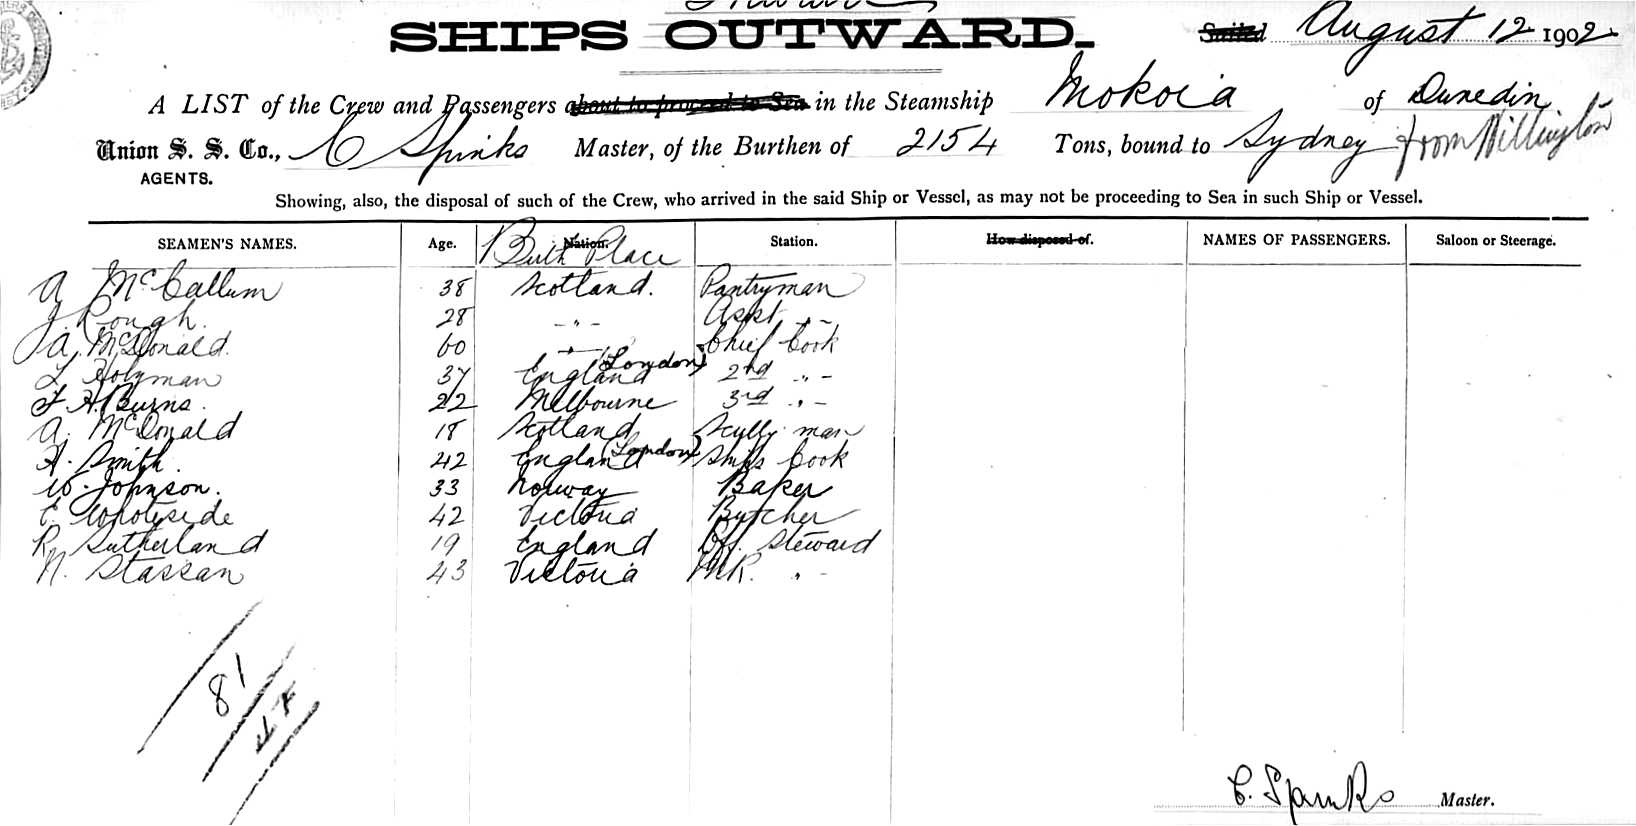 SHIPS OUTWARD.
Sailed August 12 1902
A LIST of the Crew and Passengers about to proceed to Sea in the Steamship Mokoia of Dunedin
Union S. S. Co., C Spinks Master, of the Burthen of 2154 Tons, bound to Sydney from Willington
AGENTS.
Showing, also, the disposal of such of the Crew, who arrived in the said Ship or Vessel, as may not be proceeding to Sea in such Ship or Vessel.
SEAMEN'S NAMES. Age. Nation. Birth Place Station. How disposed of. NAMES OF PASSENGERS. Saloon or Steerage.
A McCallum 38 Scotland. Pantryman
J. Rough. 28 -"- Asst "-
A. McDonald. 60 -"- Chief Cook
Holyman 37 England (London) 2nd "-
F. H. Burns. 22 Melbourne 3rd "-
A. McDonald 18 Scotland Scully man
H. Smith. 42 England (London) Ships Cook
W. Johnson. 33 Norway Baker
E. Whiteside 42 Victoria Butcher
R. Sutherland 19 England Off. Steward
N. Stassan 43 Victoria MR. "-
81
C. Spinks Master.